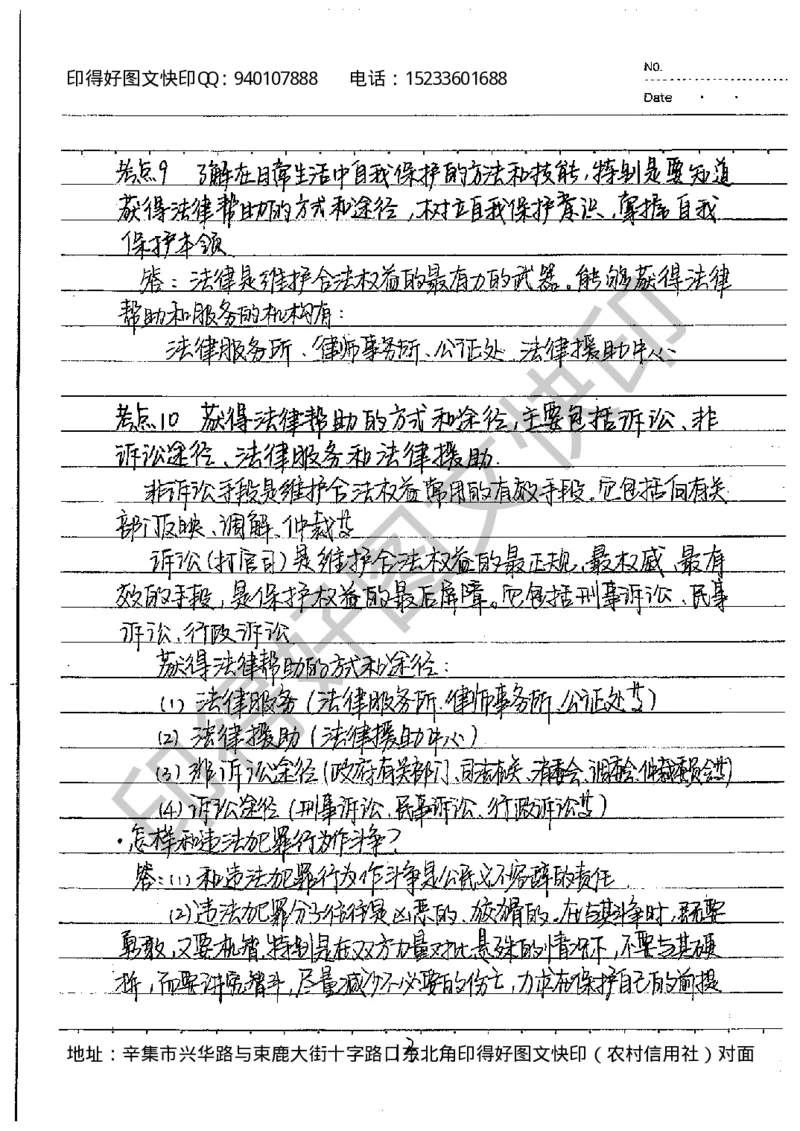 印得好图文快印QQ：940107888 电话：15233601688
No.
Date
考点9 了解在日常生活中自我保护的方法和技能，特别是要知道
获得法律帮助的方式和途径，树立自我保护意识，掌握自我
保护本领
答：法律是维护合法权益的最有力的武器。能够获得法律
帮助和服务的机构有：
法律服务所、律师事务所、公证处、法律援助中心
考点10 获得法律帮助的方式和途径，主要包括诉讼、非
诉讼途径、法律服务和法律援助.
非诉讼手段是维护合法权益常用的有效手段。它包括向有关
部门反映、调解、仲裁等
诉讼（打官司）是维护合法权益的最正规、最权威、最有
效的手段，是保护权益的最后屏障。它包括刑事诉讼、民事
诉讼、行政诉讼
获得法律帮助的方式和途径：
(1) 法律服务（法律服务所、律师事务所、公证处等）
(2) 法律援助（法律援助中心）
(3) 非诉讼途径（政府有关部门、司法机关、消委会、调委会、仲裁委员会等）
(4) 诉讼途径（刑事诉讼、民事诉讼、行政诉讼等）
·怎样和违法犯罪行为作斗争？
答：(1) 和违法犯罪行为作斗争是公民义不容辞的责任.
(2) 违法犯罪分子往往是凶恶的、狡猾的。在与其斗争时，既要
勇敢，又要机智。特别是在双方力量对比悬殊的情况下，不要与其硬
拼，而要讲究智斗，尽量减少不必要的伤亡，力求在保护自己的前提
地址：辛集市兴华路与束鹿大街十字路口东北角印得好图文快印（农村信用社）对面
印得好图文快印